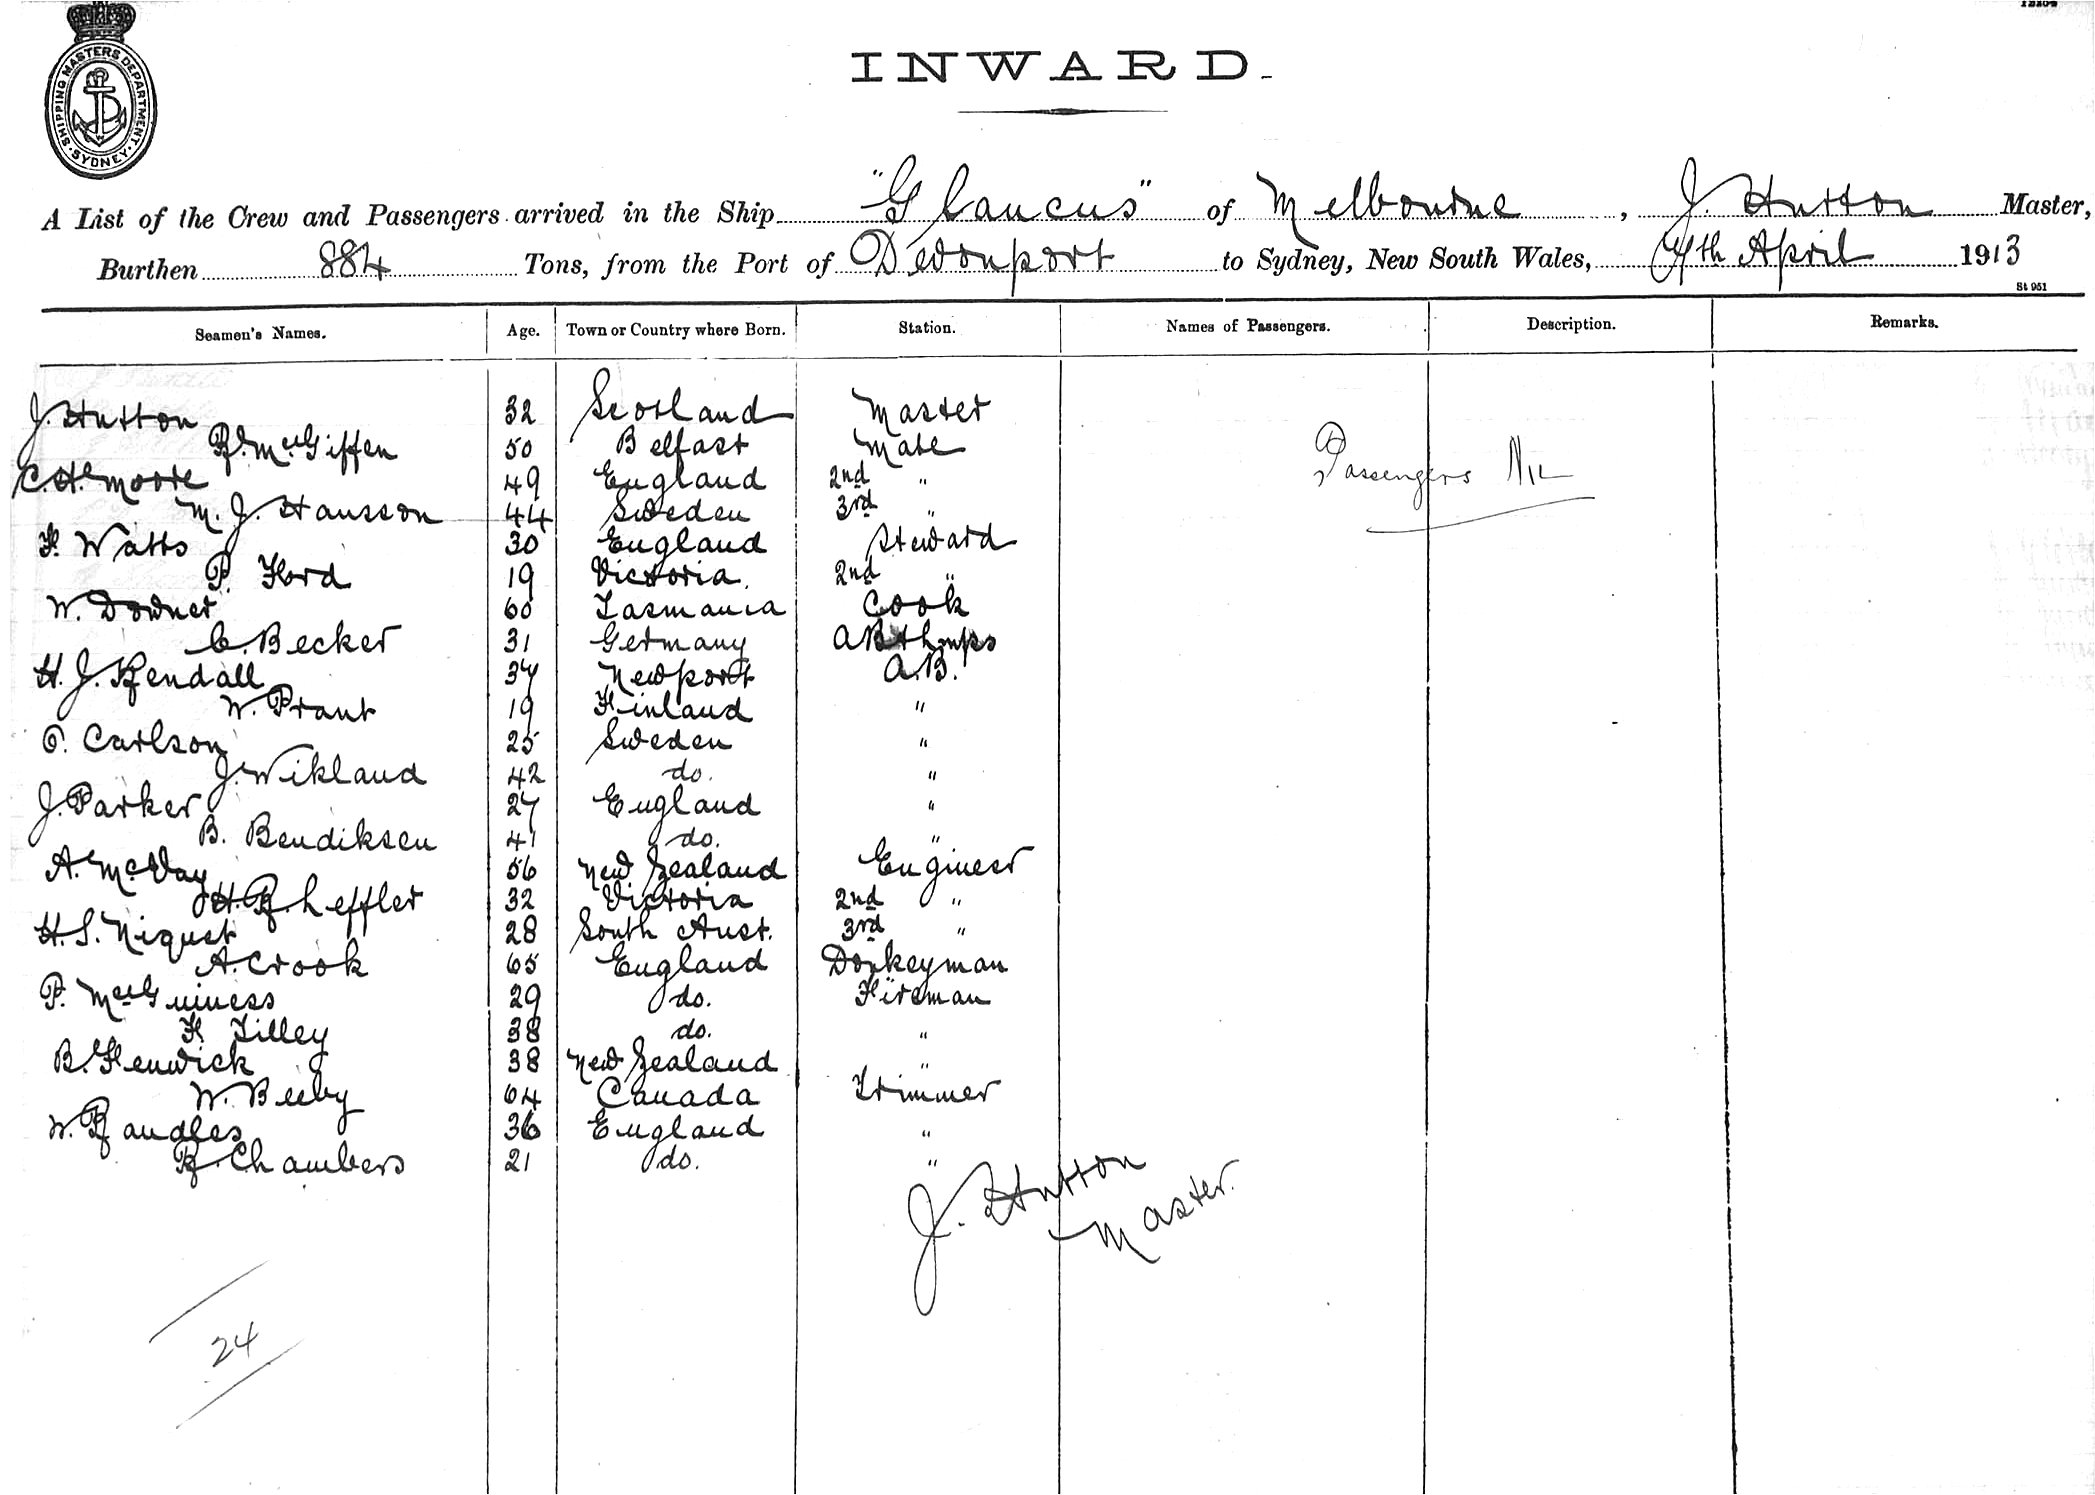 SHIPPING MASTERS DEPARTMENT
SYDNEY
INWARD.
A List of the Crew and Passengers arrived in the Ship "Glaucus" of Melbourne, J. Hutton Master,
Burthen 884 Tons, from the Port of Devonport to Sydney, New South Wales, 7th April 1913
St 951
Seamen's Names. Age. Town or Country where Born. Station. Names of Passengers. Description. Remarks.
J. Hutton 32 Scotland Master
R. McGiffen 50 Belfast Mate
C. H. Moore 49 England 2nd "
M. J. Hansson 44 Sweden 3rd "
Passengers Nil
F. Watts 30 England Steward
P. Ford 19 Victoria. 2nd "
W. Downer 60 Tasmania Cook
C. Becker 31 Germany AB & Lmps
H. J. Kendall 37 Newport A.B.
W. Prant 19 Finland "
O. Carlson 25 Sweden "
J. Wikland 42 do. "
J. Parker 27 England "
B. Bendiksen 41 do. "
A. McVay 56 New Zealand Engineer
H. R. Leffler 32 Victoria 2nd "
H. S. Niquet 28 South Aust. 3rd "
A. Crook 65 England Donkeyman
P. McGuiness 29 do. Fireman
F. Tilley 38 do. "
B. Fenwick 38 New Zealand "
W. Beeby 64 Canada Trimmer
W. Randles 36 England "
R. Chambers 21 do. "
J. Hutton
Master.
24